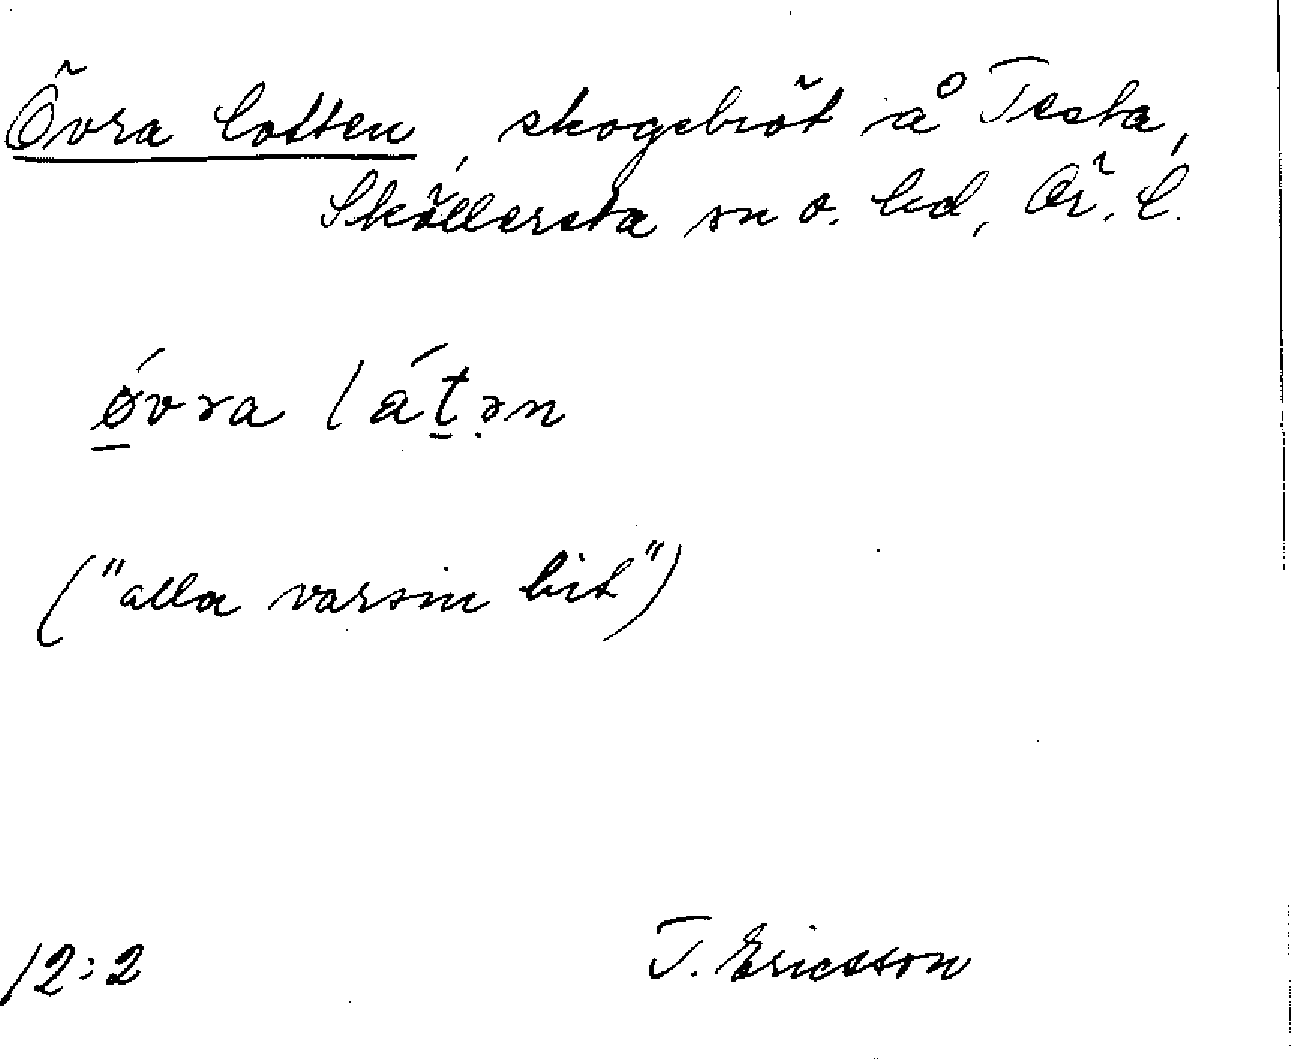 Övra lotten, skogsbröt å Testa,
Sköllersta sn o. hd, Ör. l.
ǿvra látən
("alla varsin bit")
12:2
T. Ericsson